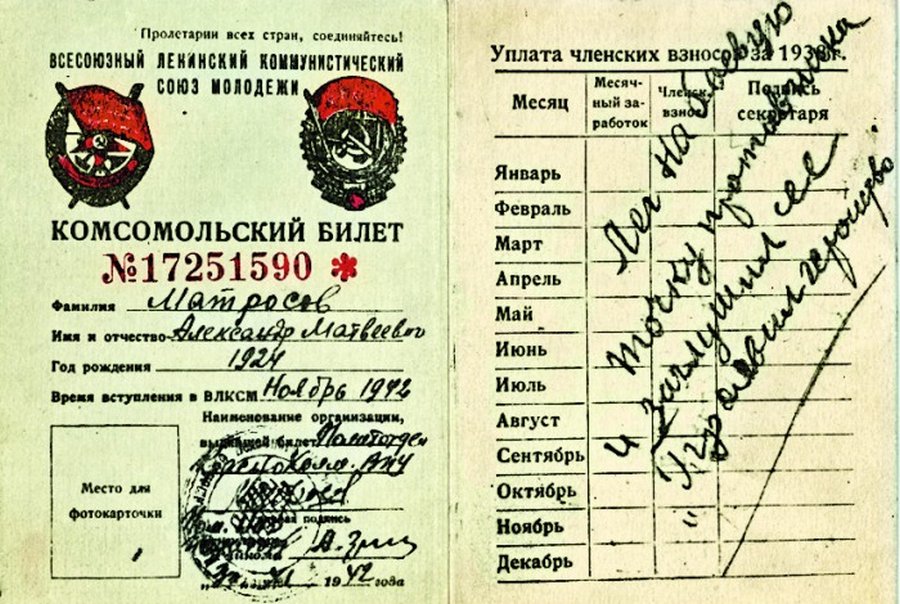 Пролетарии всех стран, соединяйтесь!
ВСЕСОЮЗНЫЙ ЛЕНИНСКИЙ КОММУНИСТИЧЕСКИЙ
СОЮЗ МОЛОДЕЖИ
КОМСОМОЛЬСКИЙ БИЛЕТ
№17251590 *
Фамилия Матросов
Имя и отчество Александр Матвеевич
Год рождения 1924
Время вступления в ВЛКСМ Ноябрь 1942
Наименование организации,
выдавшей билет Политотдел
Краснохолм. ВПУ
Место для
фотокарточки
подпись
1942 года
Уплата членских взносов за 1938 г.
Месяц
Месяч-
ный за-
работок
Членск.
взнос
Подпись
секретаря
Январь
Февраль
Март
Апрель
Май
Июнь
Июль
Август
Сентябрь
Октябрь
Ноябрь
Декабрь
Лег на боевую
точку противника
и заглушил ее
Проявил геройство